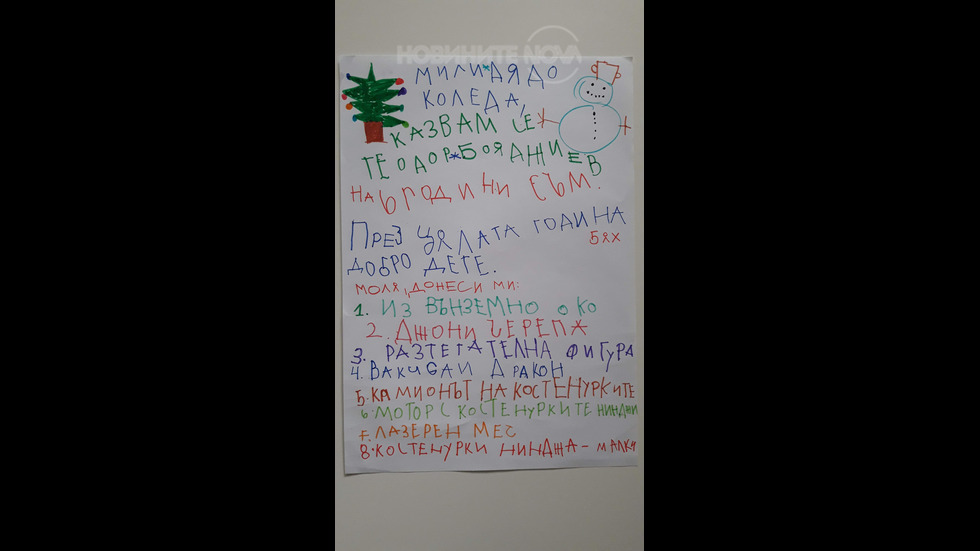 НОВИНИТЕ NOVA
МИЛИ ДЯДО
КОЛЕДА,
КАЗВАМ СЕ
ТЕОДОР БОЯДЖИЕВ
НА 6 ГОДИНИ СЪМ.
ПРЕЗ ЦЯЛАТА ГОДИНА
БЯХ
ДОБРО ДЕТЕ.
МОЛЯ, ДОНЕСИ МИ:
1. ИЗВЪНЗЕМНО ОКО
2. ДЖОНИ ЧЕРЕПА
3. РАЗТЕГАТЕЛНА ФИГУРА
4. ДРАКОН
5. КАМИОНЪТ НА КОСТЕНУРКИТЕ
6. МОТОР С КОСТЕНУРКИТЕ НИНДЖИ
7. ЛАЗЕРЕН МЕС
8. КОСТЕНУРКИ НИНДЖА - МАЛКИ